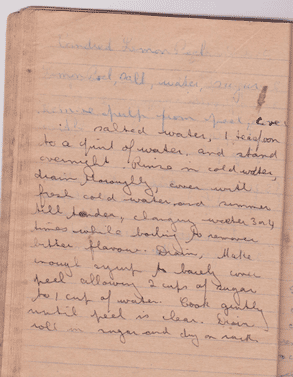 Candied Lemon Peel
cool, salt, water, sugar
pulp from peel cover
in salted water, 1
to a pint of water and stand
overnight. Rinse in cold water,
drain thoroughly, cover with
fresh cold water and simmer
till tender, changing water 3 or 4
times while boiling to remove
bitter flavour. Drain, Make
enough syrup to barely cover
peel allowing 2 cups of sugar
to 1 cup of water. Cook gently
until peel is clear.
roll in sugar and dry on rack.